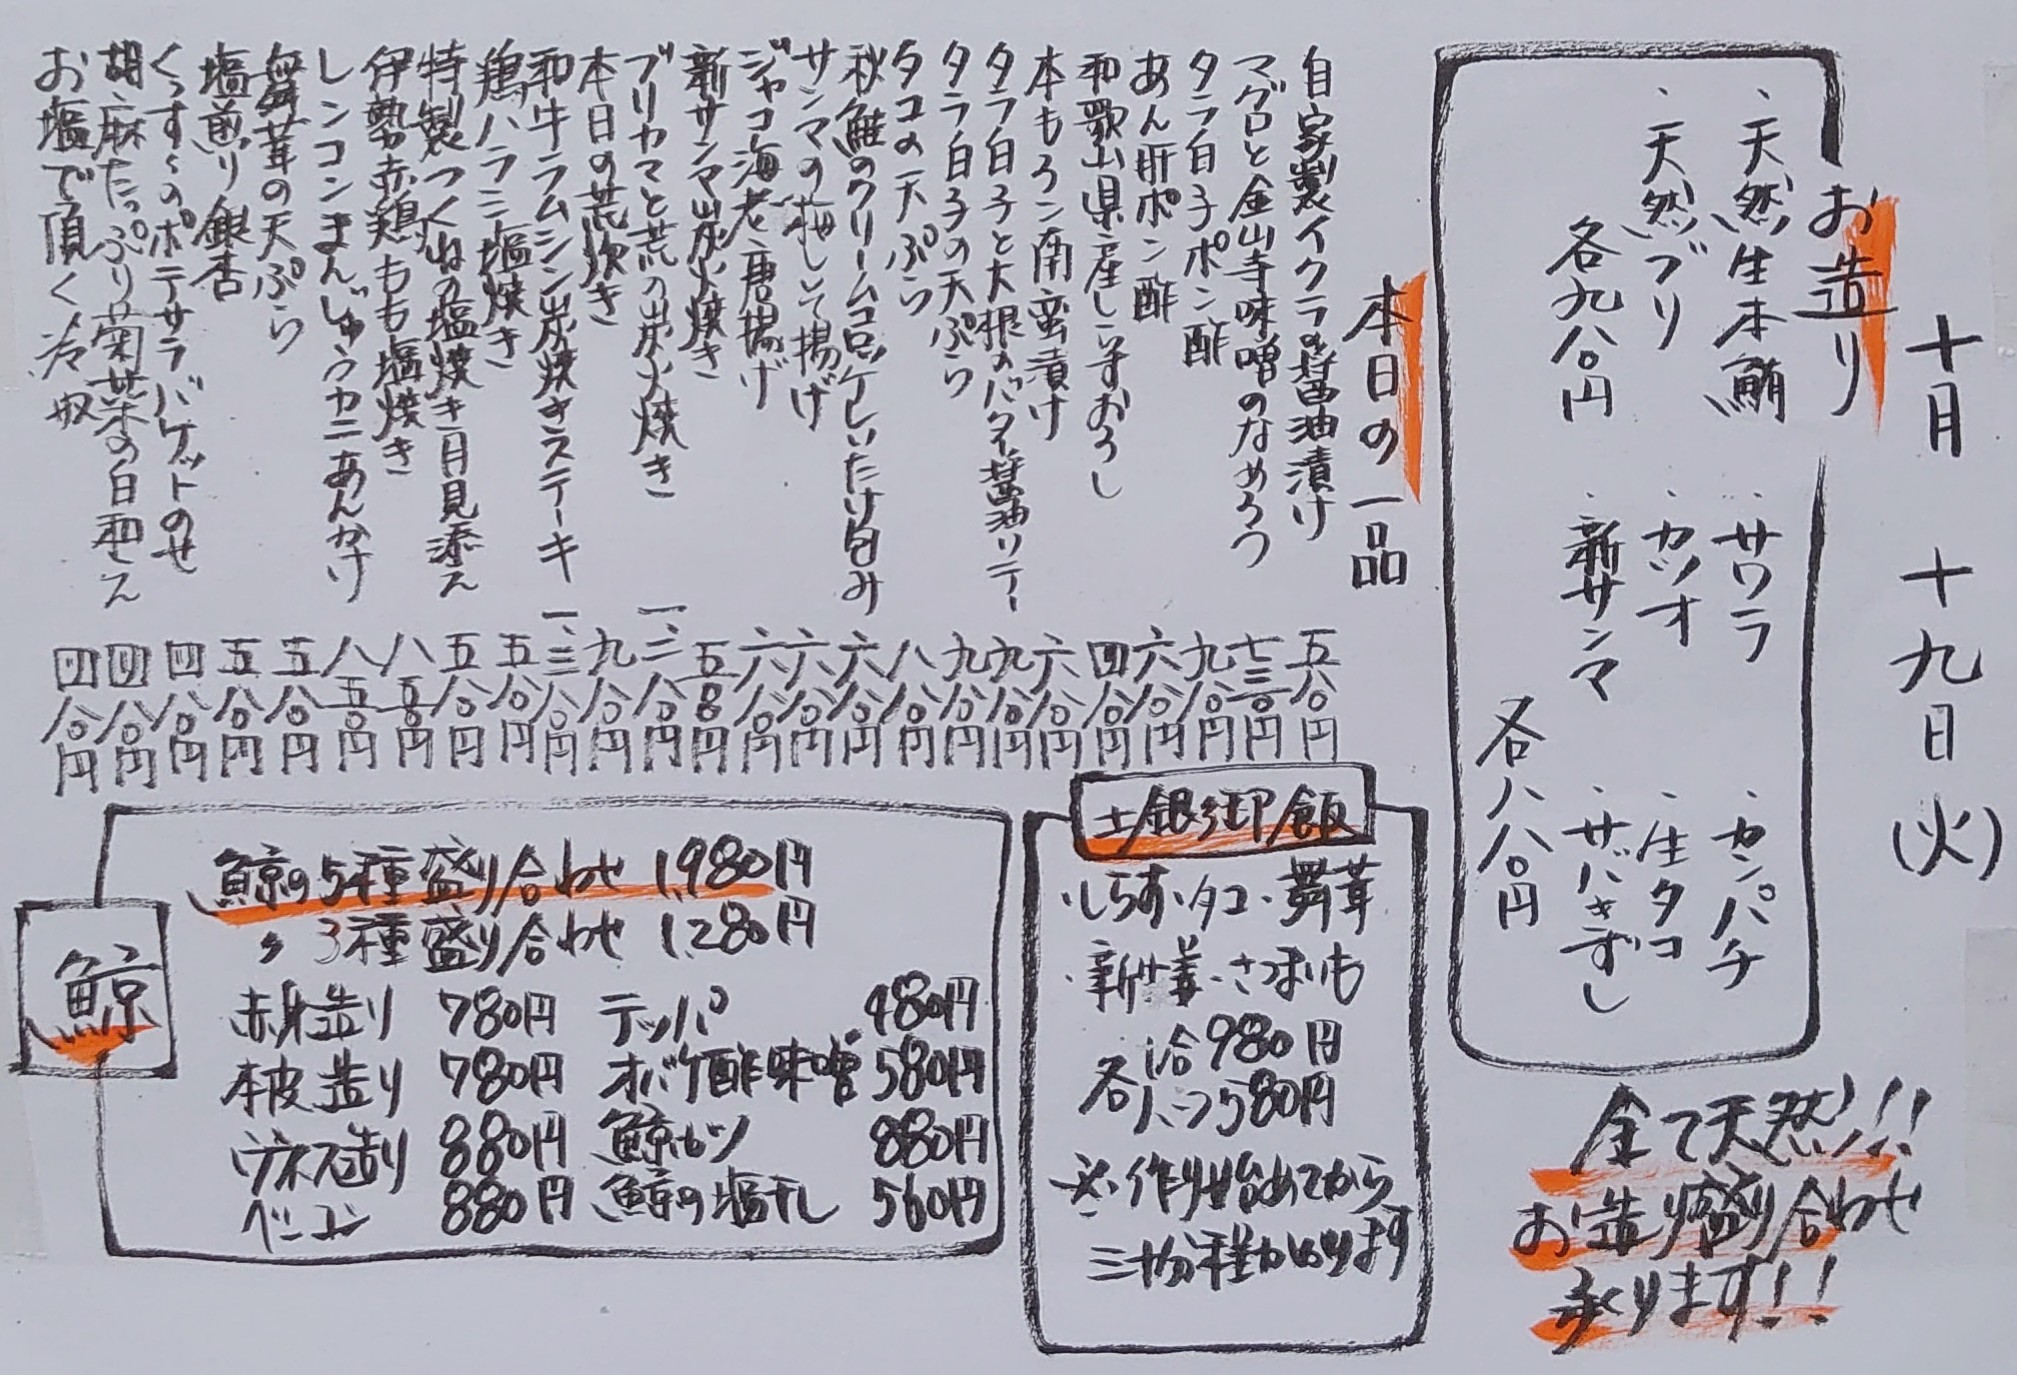 十月 十九日(火)
お造り
・天然生本鮪
・天然ブリ
各九八〇円
・サワラ
・カツオ
・新サンマ
・カンパチ
・生タコ
・サバきずし
各八八〇円
全て天然!!
お造り盛り合わせ
承ります!!
本日の一品
自家製イクラの醤油漬け 五八〇円
マグロと金山寺味噌のなめろう 七三〇円
タラ白子ポン酢 九八〇円
あん肝ポン酢 六八〇円
和歌山県産しらすおろし 四八〇円
本もろこ南蛮漬け 六八〇円
タラ白子と大根のバター醤油ソテー 九八〇円
タラ白子の天ぷら 九八〇円
タコの天ぷら 八八〇円
秋鮭のクリームコロッケしいたけ包み 六八〇円
サンマの梅しそ揚げ 六八〇円
ジャコ海老唐揚げ 六八〇円
新サンマ炭火焼き 五八〇円
ブリカマと荒の炭火焼き 一、二八〇円
本日の荒炊き 九八〇円
和牛ラムシン炭焼きステーキ 一、三八〇円
鶏ハラミ塩焼き 五八〇円
特製つくねの塩焼き月見添え 五八〇円
伊勢赤鶏もも塩焼き 八五〇円
レンコンまんじゅうカニあんかけ 八五〇円
舞茸の天ぷら 五八〇円
塩煎り銀杏 五八〇円
くんすーのポテサラバケットのせ 四八〇円
胡麻たっぷり菊菜の白和え 四八〇円
お塩で頂く冷奴 四八〇円
土鍋御飯
・しらす・タコ・舞茸
・新生姜・さつまいも
各 1合 980円
ハーフ 580円
※作り始めてから
三十分程かかります
鯨
鯨の5種盛り合わせ 1,980円
〃 3種盛り合わせ 1,280円
赤身造り 780円 テッパ 480円
本皮造り 780円 オバケ酢味噌 580円
ウネス造り 880円 鯨カツ 880円
ベーコン 880円 鯨の塩干し 560円